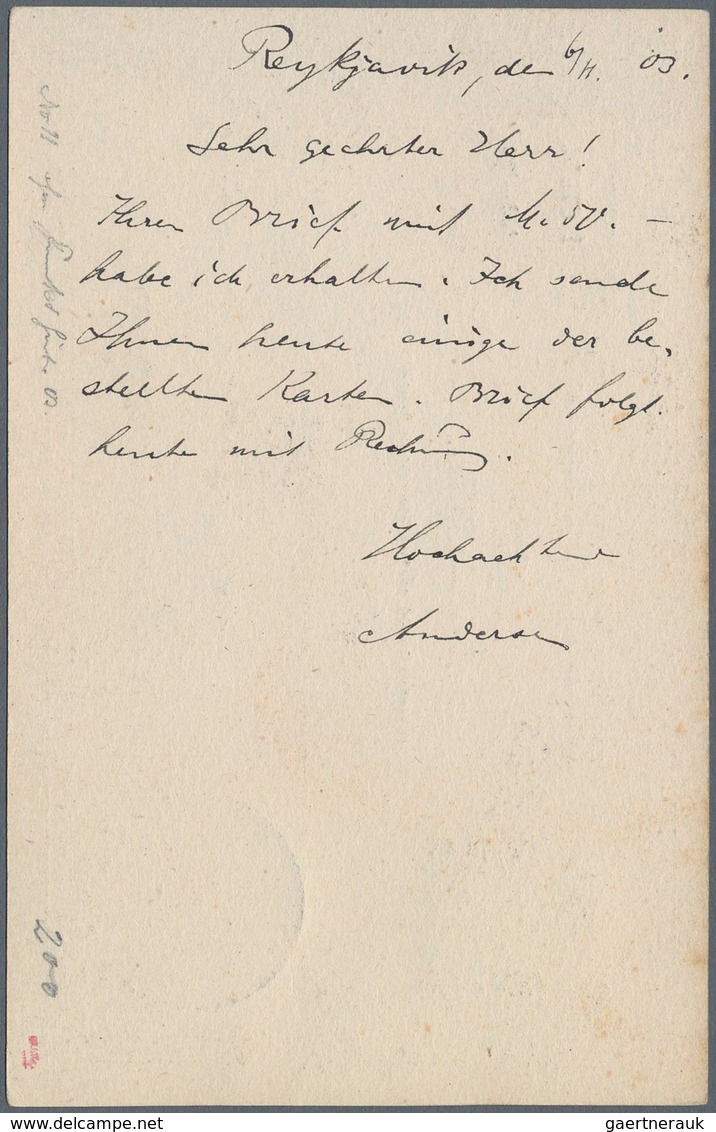 Reykjavik, den 6/11. 03.
Sehr geehrter Herr!
Ihren Brief mit M. 50. –
habe ich erhalten. Ich sende
Ihnen heute einige der be-
stellten Karten. Brief folgt
heute mit Rechnung.
Hochachtend
Andersen
No 11
03.
200
gaertnerauk